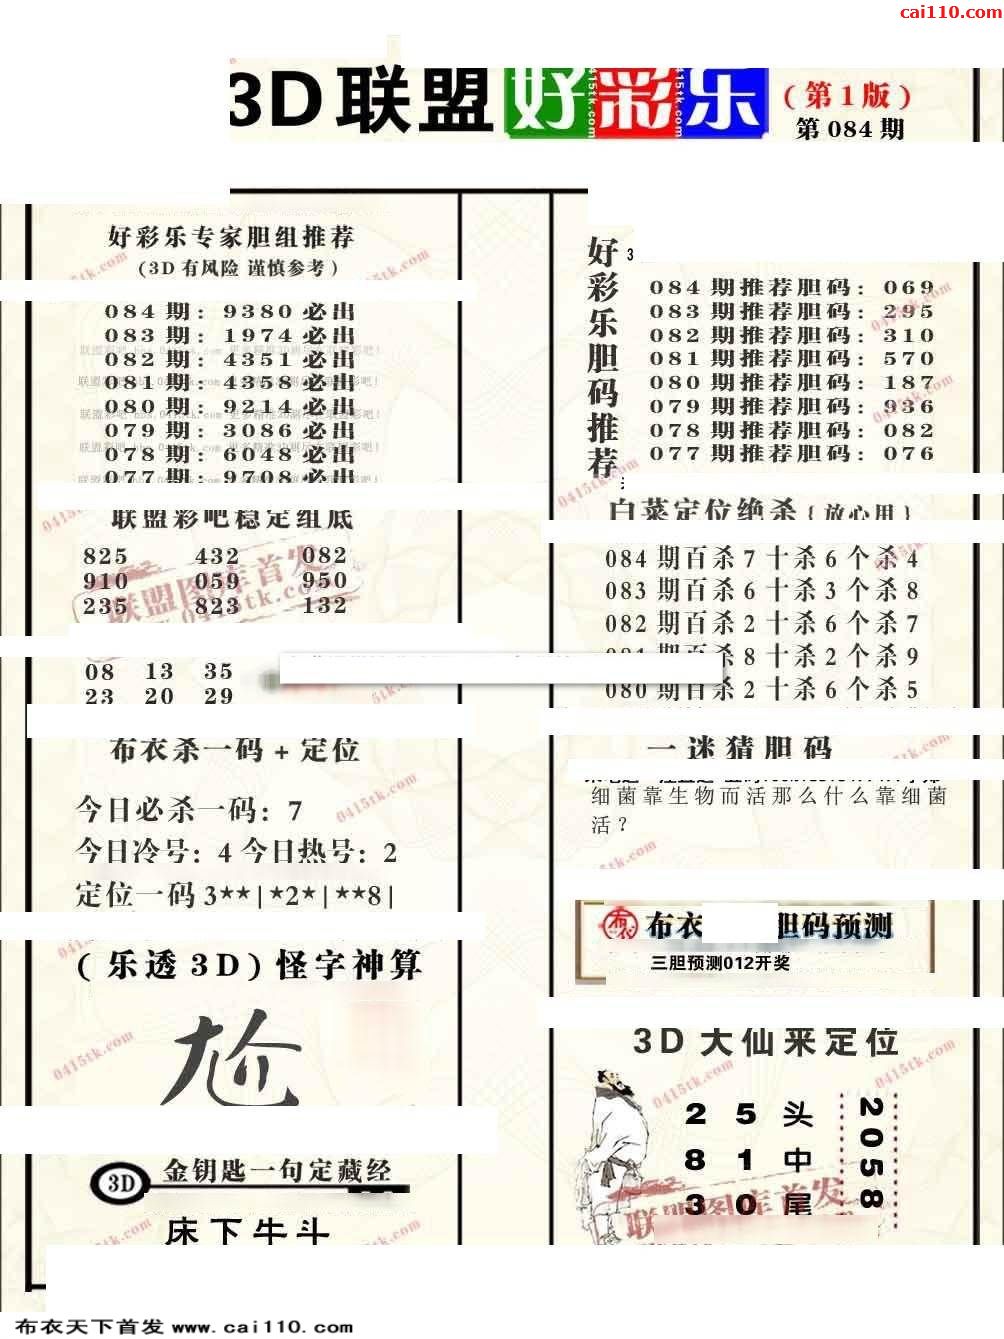 cai110.com
3D联盟好彩乐(第1版)
第084期
好彩乐专家胆组推荐
(3D有风险 谨慎参考)
084期: 9380必出
083期: 1974必出
082期: 4351必出
081期: 4358必出
080期: 9214必出
079期: 3086必出
078期: 6048必出
077期: 9708必出
联盟彩吧稳定组底
825 432 082
910 059 950
235 823 132
08 13 35
23 20 29
布衣杀一码+定位
今日必杀一码: 7
今日冷号: 4 今日热号: 2
定位一码 3**|*2*|**8|
(乐透3D)怪字神算
尬
3D 金钥匙一句定藏经
床下牛斗
好彩乐胆码推荐
3
084期推荐胆码: 069
083期推荐胆码: 295
082期推荐胆码: 310
081期推荐胆码: 570
080期推荐胆码: 187
079期推荐胆码: 936
078期推荐胆码: 082
077期推荐胆码: 076
白菜定位绝杀{放心用}
084期百杀7十杀6个杀4
083期百杀6十杀3个杀8
082期百杀2十杀6个杀7
杀8十杀2个杀9
080期百杀2十杀6个杀5
一迷猜胆码
细菌靠生物而活那么什么靠细菌
活?
布衣 胆码预测
三胆预测012开奖
3D大仙来定位
2 5 头
8 1 中
3 0 尾
2058
联盟图库首发
0415tk.com
布衣天下首发 www.cai110.com